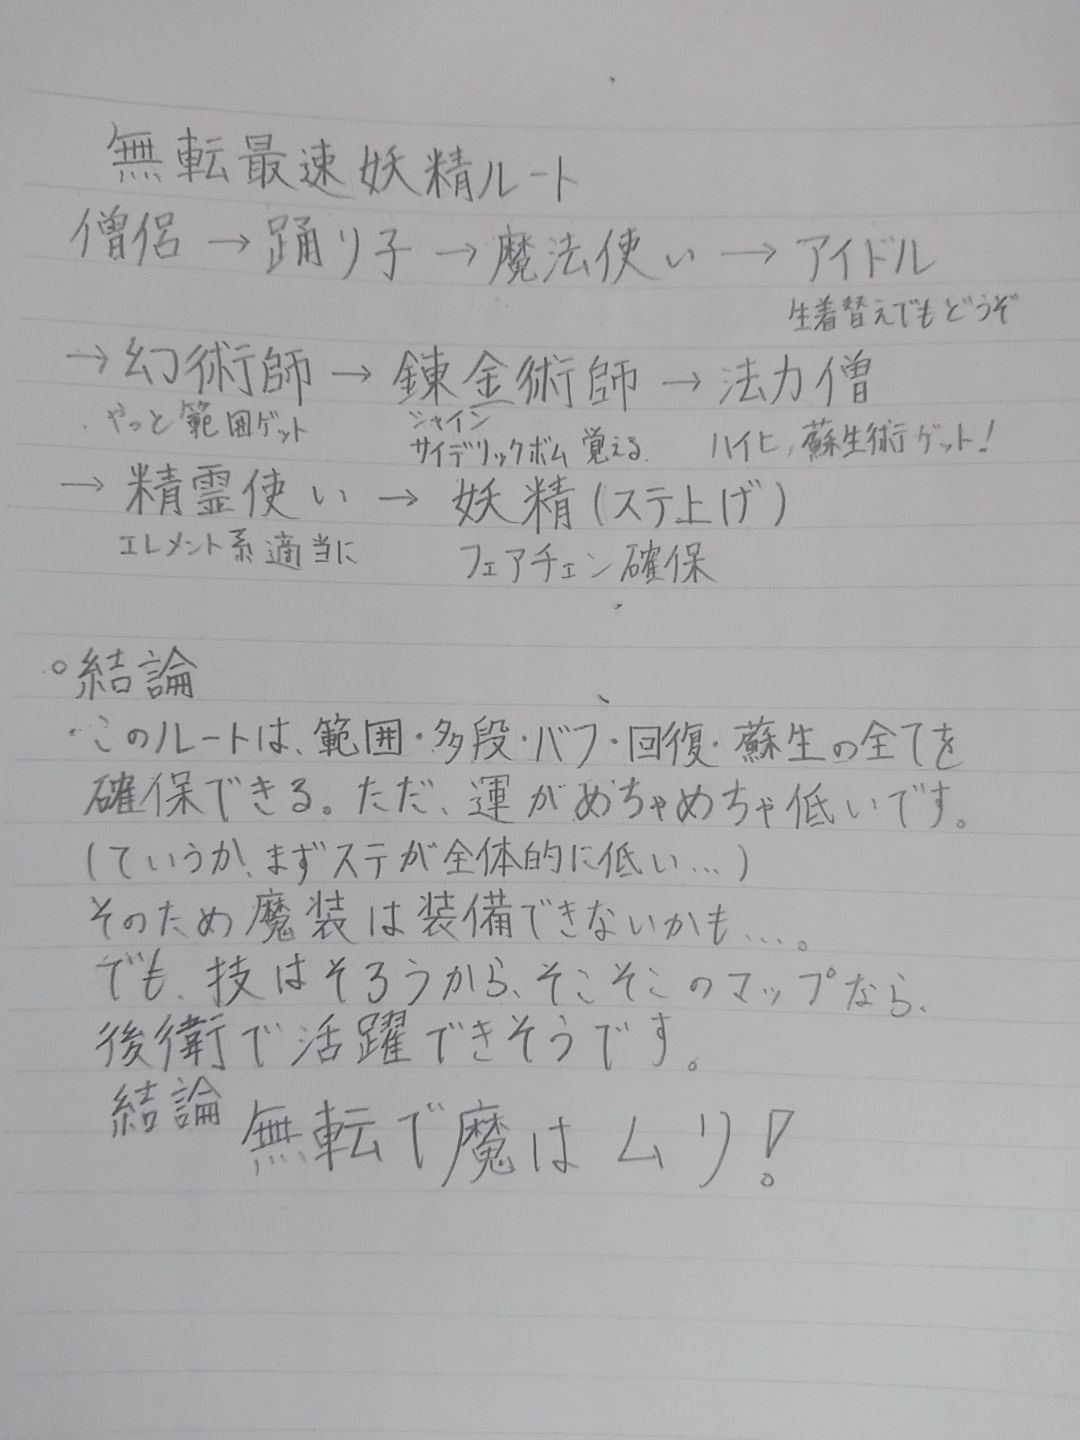 無転最速妖精ルート
僧侶→踊り子→魔法使い→アイドル
生着替えでもどうぞ
→幻術師→錬金術師→法力僧
やっと範囲ゲット
シャイン
サイデリックボム覚える
ハイヒ,蘇生術ゲット!
→精霊使い→妖精(ステ上げ)
エレメント系適当に
フェアチェン確保
。結論
・このルートは、範囲・多段・バフ・回復・蘇生の全てを
確保できる。ただ、運がめちゃめちゃ低いです。
(ていうか、まずステが全体的に低い...)
そのため魔装は装備できないかも...。
でも、技はそろうから、そこそこのマップなら、
後衛で活躍できそうです。
結論
無転で魔はムリ!